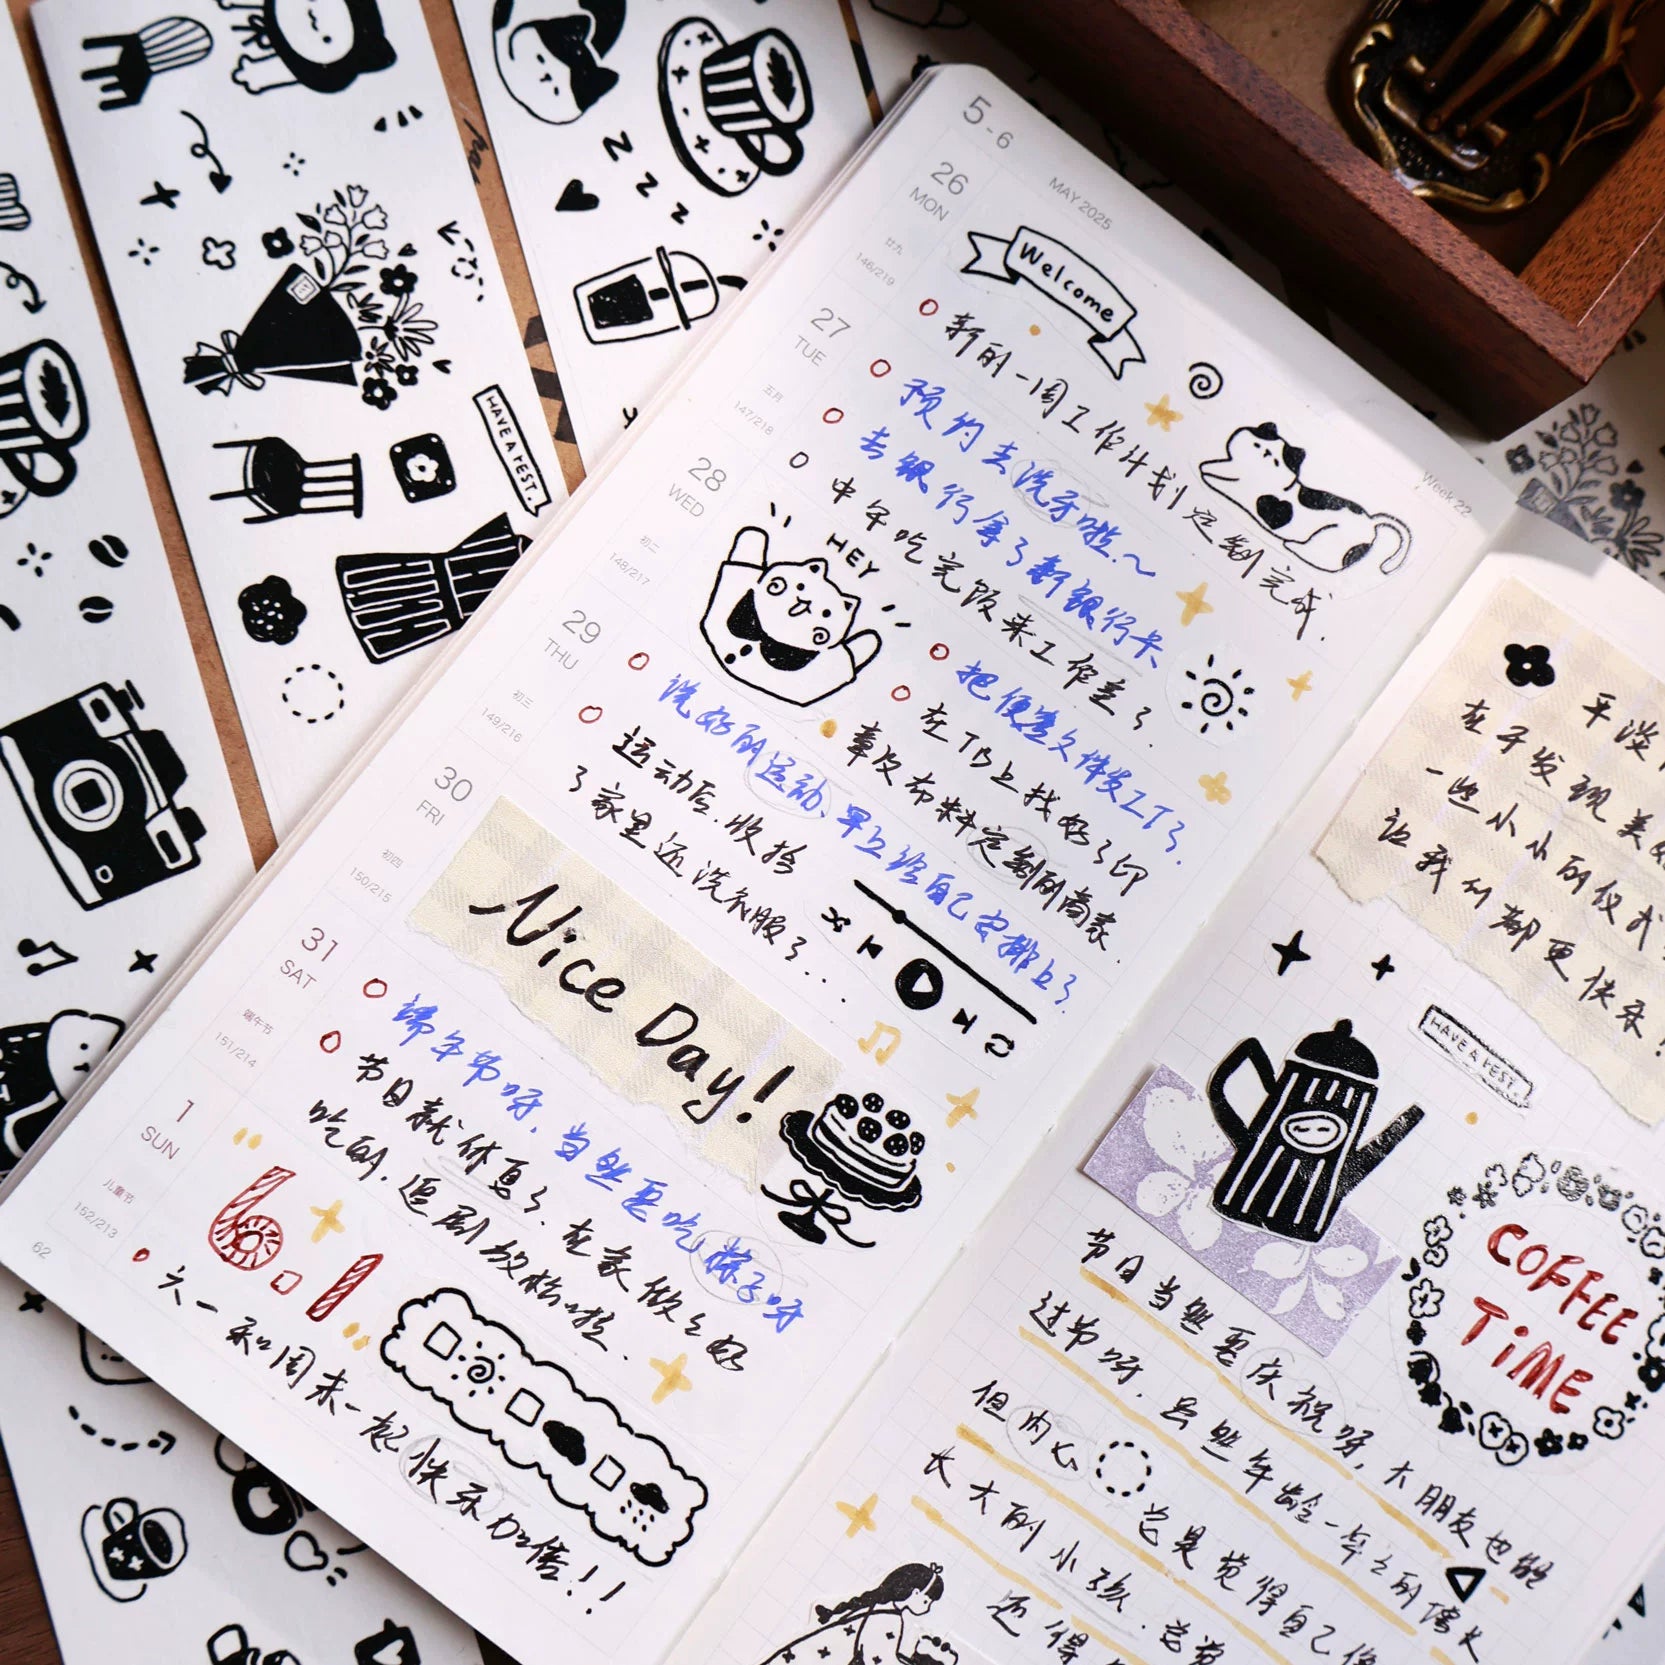 5-6
MAY 2025
Week 22
26
MON
廿九
146/219
Welcome
新的一周工作计划定制完成.
27
TUE
五月
147/218
预约去洗牙啦~
去银行拿了新银行卡
中午吃完饭来工作室了.
28
WED
初二
148/217
HEY
把便签文件发工厂了.
在TB上找好了印
章及布料定制的商家.
29
THU
初三
149/216
说好的运动、早上给自己安排上了
运动后.收拾
了家里还洗衣服了...
30
FRI
初四
150/215
Nice Day!
31
SAT
端午节
151/214
端午节呀,当然要吃粽子呀
节日就休息了.在家做点好
吃的.追剧放松啦.
1
SUN
儿童节
152/213
6.1
六一和周末一起快乐加倍!!
62
平淡
在于发现美
一些小小的仪式
让我们都更快乐!
HAVE A REST.
COFFEE
TIME
节日当然要庆祝呀,大朋友也能
过节呀.虽然年龄一年之的增长
但内心总是觉得自己像
长大的小孩.总觉
还得
HAVE A REST.
z z z z